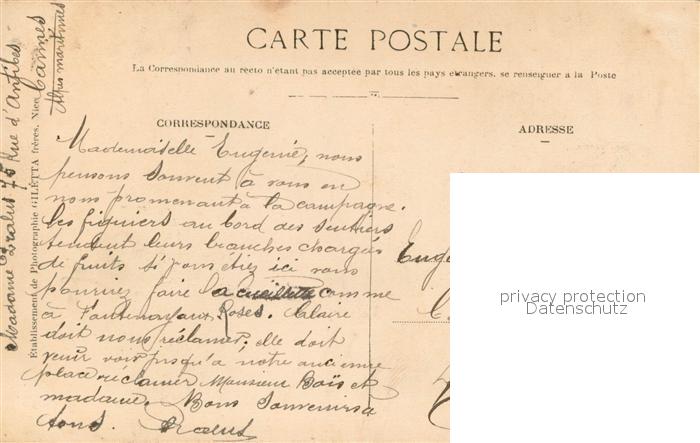 CARTE POSTALE
La Correspondance au recto n'étant pas acceptée par tous les pays étrangers, se renseigner à la Poste
CORRESPONDANCE
ADRESSE
Mademoiselle Eugenie, nous
pensons souvent à vous en
nous promenant à la campagne.
les figuiers au bord des sentiers
tendent leurs branches chargés
de fruits si vous étiez ici vous
pourriez faire la cueillette comme
à Fontenay aux Roses. Claire
doit nous réclamer, elle doit
venir voir jusqu'à notre ancienne
place réclamer Monsieur Boïs et
madame. Bons Souvenirs a
tous.
Madame
75 Rue d'Antibes
Cannes
Alpes maritimes
Établissement de Photographie GILETTA frères, Nice
privacy protection
Datenschutz